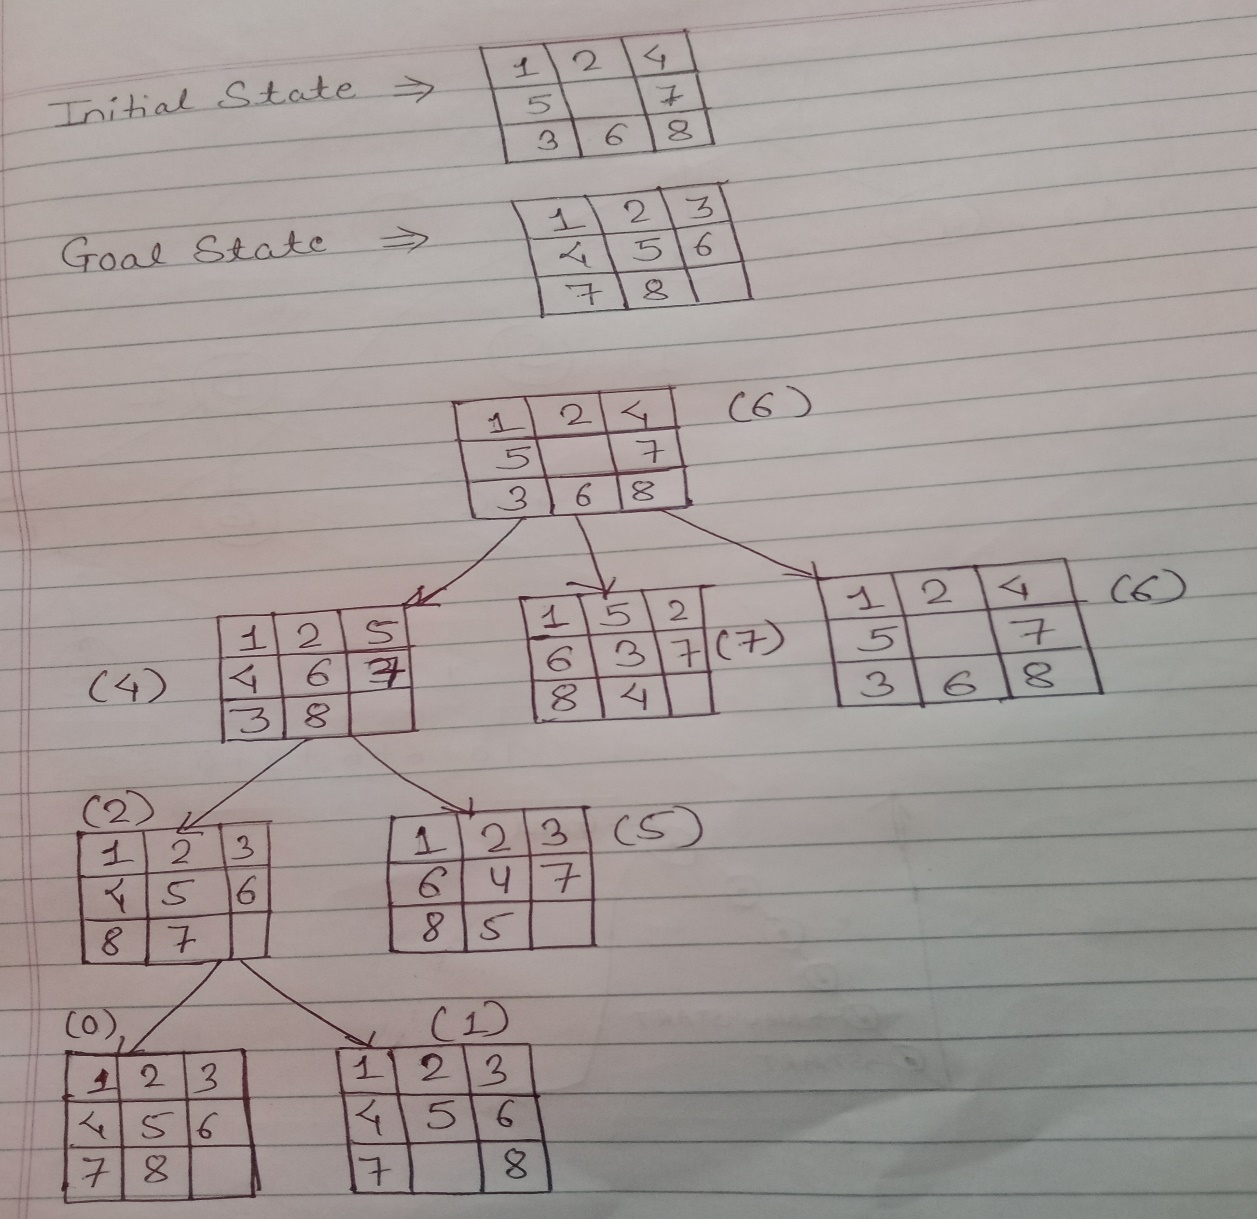 Initial State ⇒
1 2 4
5 7
3 6 8
Goal State ⇒
1 2 3
4 5 6
7 8
1 2 4 (6)
5 7
3 6 8
1 2 5
(4) 4 6 7
3 8
1 5 2
6 3 7 (7)
8 4
1 2 4 (6)
5 7
3 6 8
(2)
1 2 3
4 5 6
8 7
1 2 3 (5)
6 4 7
8 5
(0)
1 2 3
4 5 6
7 8
(1)
1 2 3
4 5 6
7 8